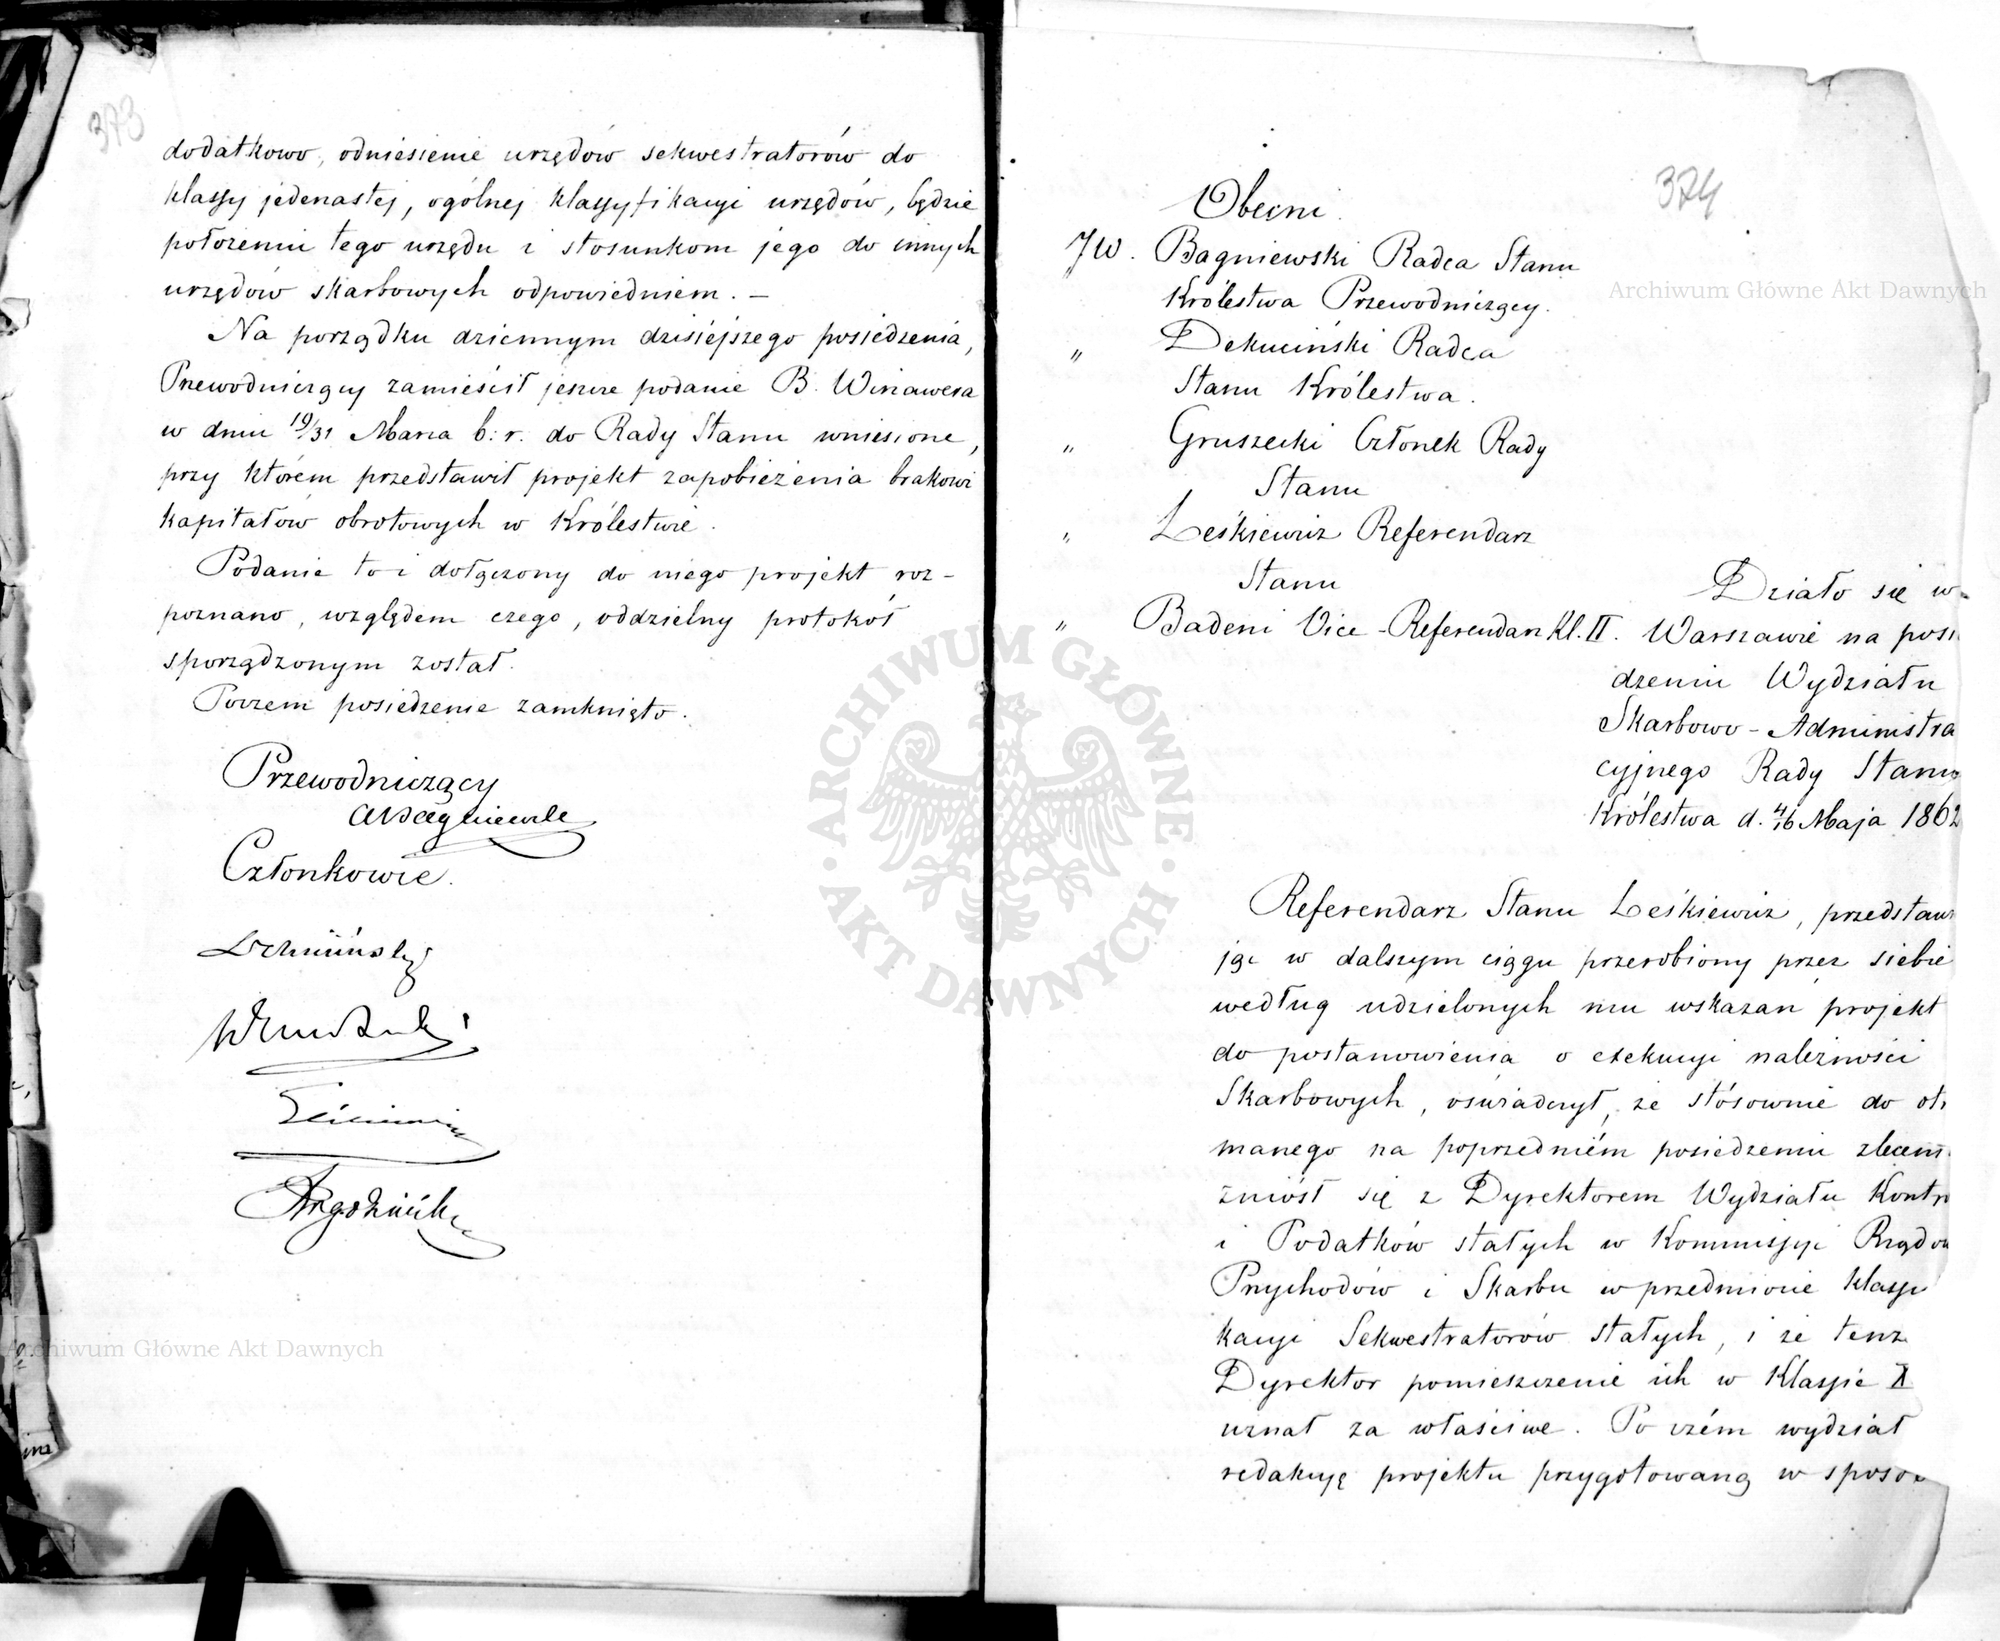 373
dodatkowo, odniesienie urzędów sekwestratorów do
klassy jedenastej, ogólnej klassyfikacyi urzędów, będzie
położeniu tego urzędu i stosunkom jego do innych
urzędów skarbowych odpowiedniem. —
Na porządku dziennym dzisiejszego posiedzenia,
Przewodniczący zamieścił jeszcze podanie B. Winawera
w dniu 19/31 Marca b: r. do Rady Stanu wniesione,
przy którem przedstawił projekt zapobieżenia brakowi
kapitałów obrotowych w Królestwie.
Podanie to i dołączony do niego projekt roz-
poznano, względem czego, oddzielny protokół
sporządzonym został.
Poczem posiedzenie zamknięto.
Przewodniczący
ABagniewski
Członkowie.
Dekuciński
Leśkiewicz
374
Obecni.
JW. Bagniewski Radca Stanu
Królestwa Przewodniczący.
" Dekuciński Radca
Stanu Królestwa.
" Gruszecki Członek Rady
Stanu
" Leśkiewicz Referendarz
Stanu
" Badeni Vice-Referendarz Kl. II.
Działo się w
Warszawie na posie
dzeniu Wydziału
Skarbowo-Administra
cyjnego Rady Stanu
Królestwa d. 4/16 Maja 1862
Referendarz Stanu Leśkiewicz, przedstawi
jąc w dalszym ciągu przerobiony przez siebie
według udzielonych mu wskazań projekt
do postanowienia o exekucyi należności
Skarbowych, oświadczył, że stósownie do otr
manego na poprzedniém posiedzeniu zleceni
zniósł się z Dyrektorem Wydziału Kontr
i Podatków stałych w Kommissyi Rządow
Przychodów i Skarbu w przedmiocie klassyf
kacyi Sekwestratorów stałych, i że tenż
Dyrektor pomieszczenie ich w Klassie X
uznał za właściwe. Po czém wydział
redakcyę projektu przygotowaną w sposo
ARCHIWUM GŁÓWNE AKT DAWNYCH
Archiwum Główne Akt Dawnych
Archiwum Główne Akt Dawnych